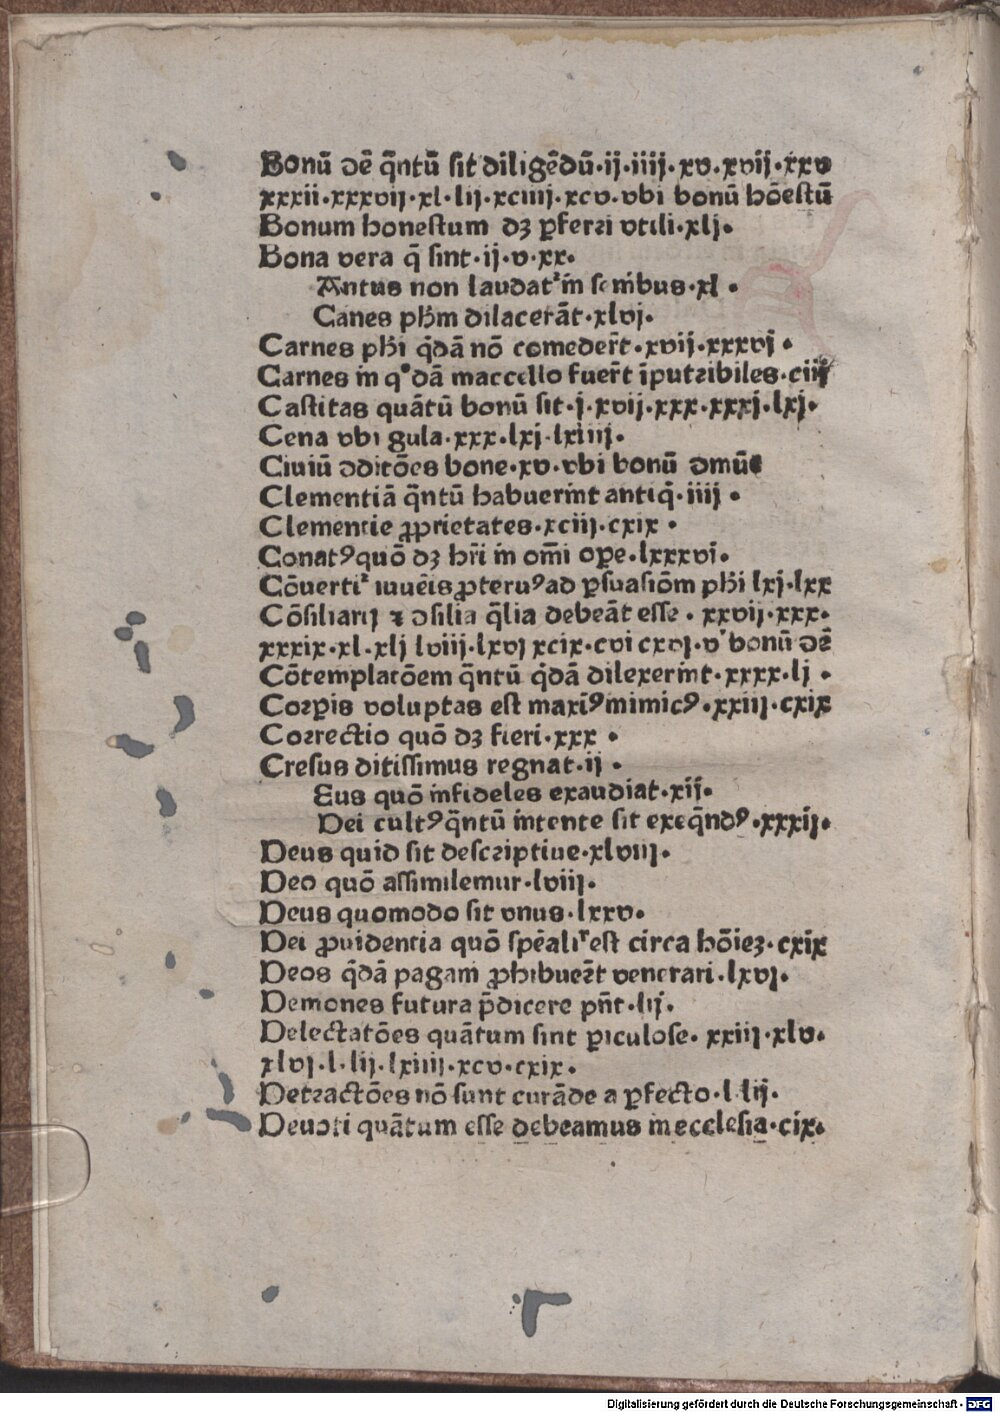 Bonū ꝺē q̄ntū sit diligēdū·ij·iiij·xv·xvij·xxv
xxxii·xxxvij·xl·lij·xciiij·xcv·vbi bonū hōestū
Bonum honestum dꝫ ꝑferri vtili·xlj·
Bona vera q̄ sint·ij·v·xx·
Antus non laudat᷑ in senibus·xl·
Canes phm̄ dilacerāt·xlvj·
Carnes phi q̄dā nō comeder̄t·xvij·xxxvj·
Carnes in q°dā maccello fuer̄t īputribiles·ciij
Castitas quātū bonū sit·j·xvij·xxx·xxxj·lxj·
Cena vbi gula·xxx·lxj·lxiiij·
Ciuiū ↄditōes bone·xv·vbi bonū ↄmūe
Clementiā q̄ntū habuerint antiq̄·iiij·
Clementie ꝓprietates·xciij·cxix·
Conatꝰ quō dꝫ hr̄i in om̄i oꝑe·lxxxvi·
Cōuerti᷑ iuuēis ꝓteruꝰ ad ꝑsuasiōm phi lxj·lxx
Cōsiliarij ⁊ ↄsilia q̄lia debeāt esse·xxvij·xxx·
xxxix·xl·xlj lviij·lxvj xcix·cvi cxvj·v' bonū ↄē
Cōtemplatōem q̄ntū q̄dā dilexerint·xxxx·lj·
Corꝑis voluptas est maxīꝰ mimicꝰ·xxiij·cxix
Correctio quō dꝫ fieri·xxx·
Cresus ditissimus regnat·ij·
Eus quō infideles exaudiat·xij·
Dei cultꝰ q̄ntū intente sit exeq̄ndꝰ·xxxij·
Deus quid sit descriptiue·xlviij·
Deo quō assimilemur·lviij·
Deus quomodo sit vnus·lxxv·
Dei ꝓuidentia quō spēali᷑ est circa hōiēꝫ·cxix
Deos q̄dā pagani ꝓhibuer̄t venerari·lxvj·
Demones futura p̄dicere pn̄t·lij·
Delectatōes quātum sint ꝑiculose·xxiij·xlv·
xlvj·l·lij·lxiiij·xcv·cxix·
Detractōes nō sunt curāde a ꝑfecto·l·lij·
Deuoti quātum esse debeamus in ecclesia·cix·
Digitalisierung gefördert durch die Deutsche Forschungsgemeinschaft - DFG